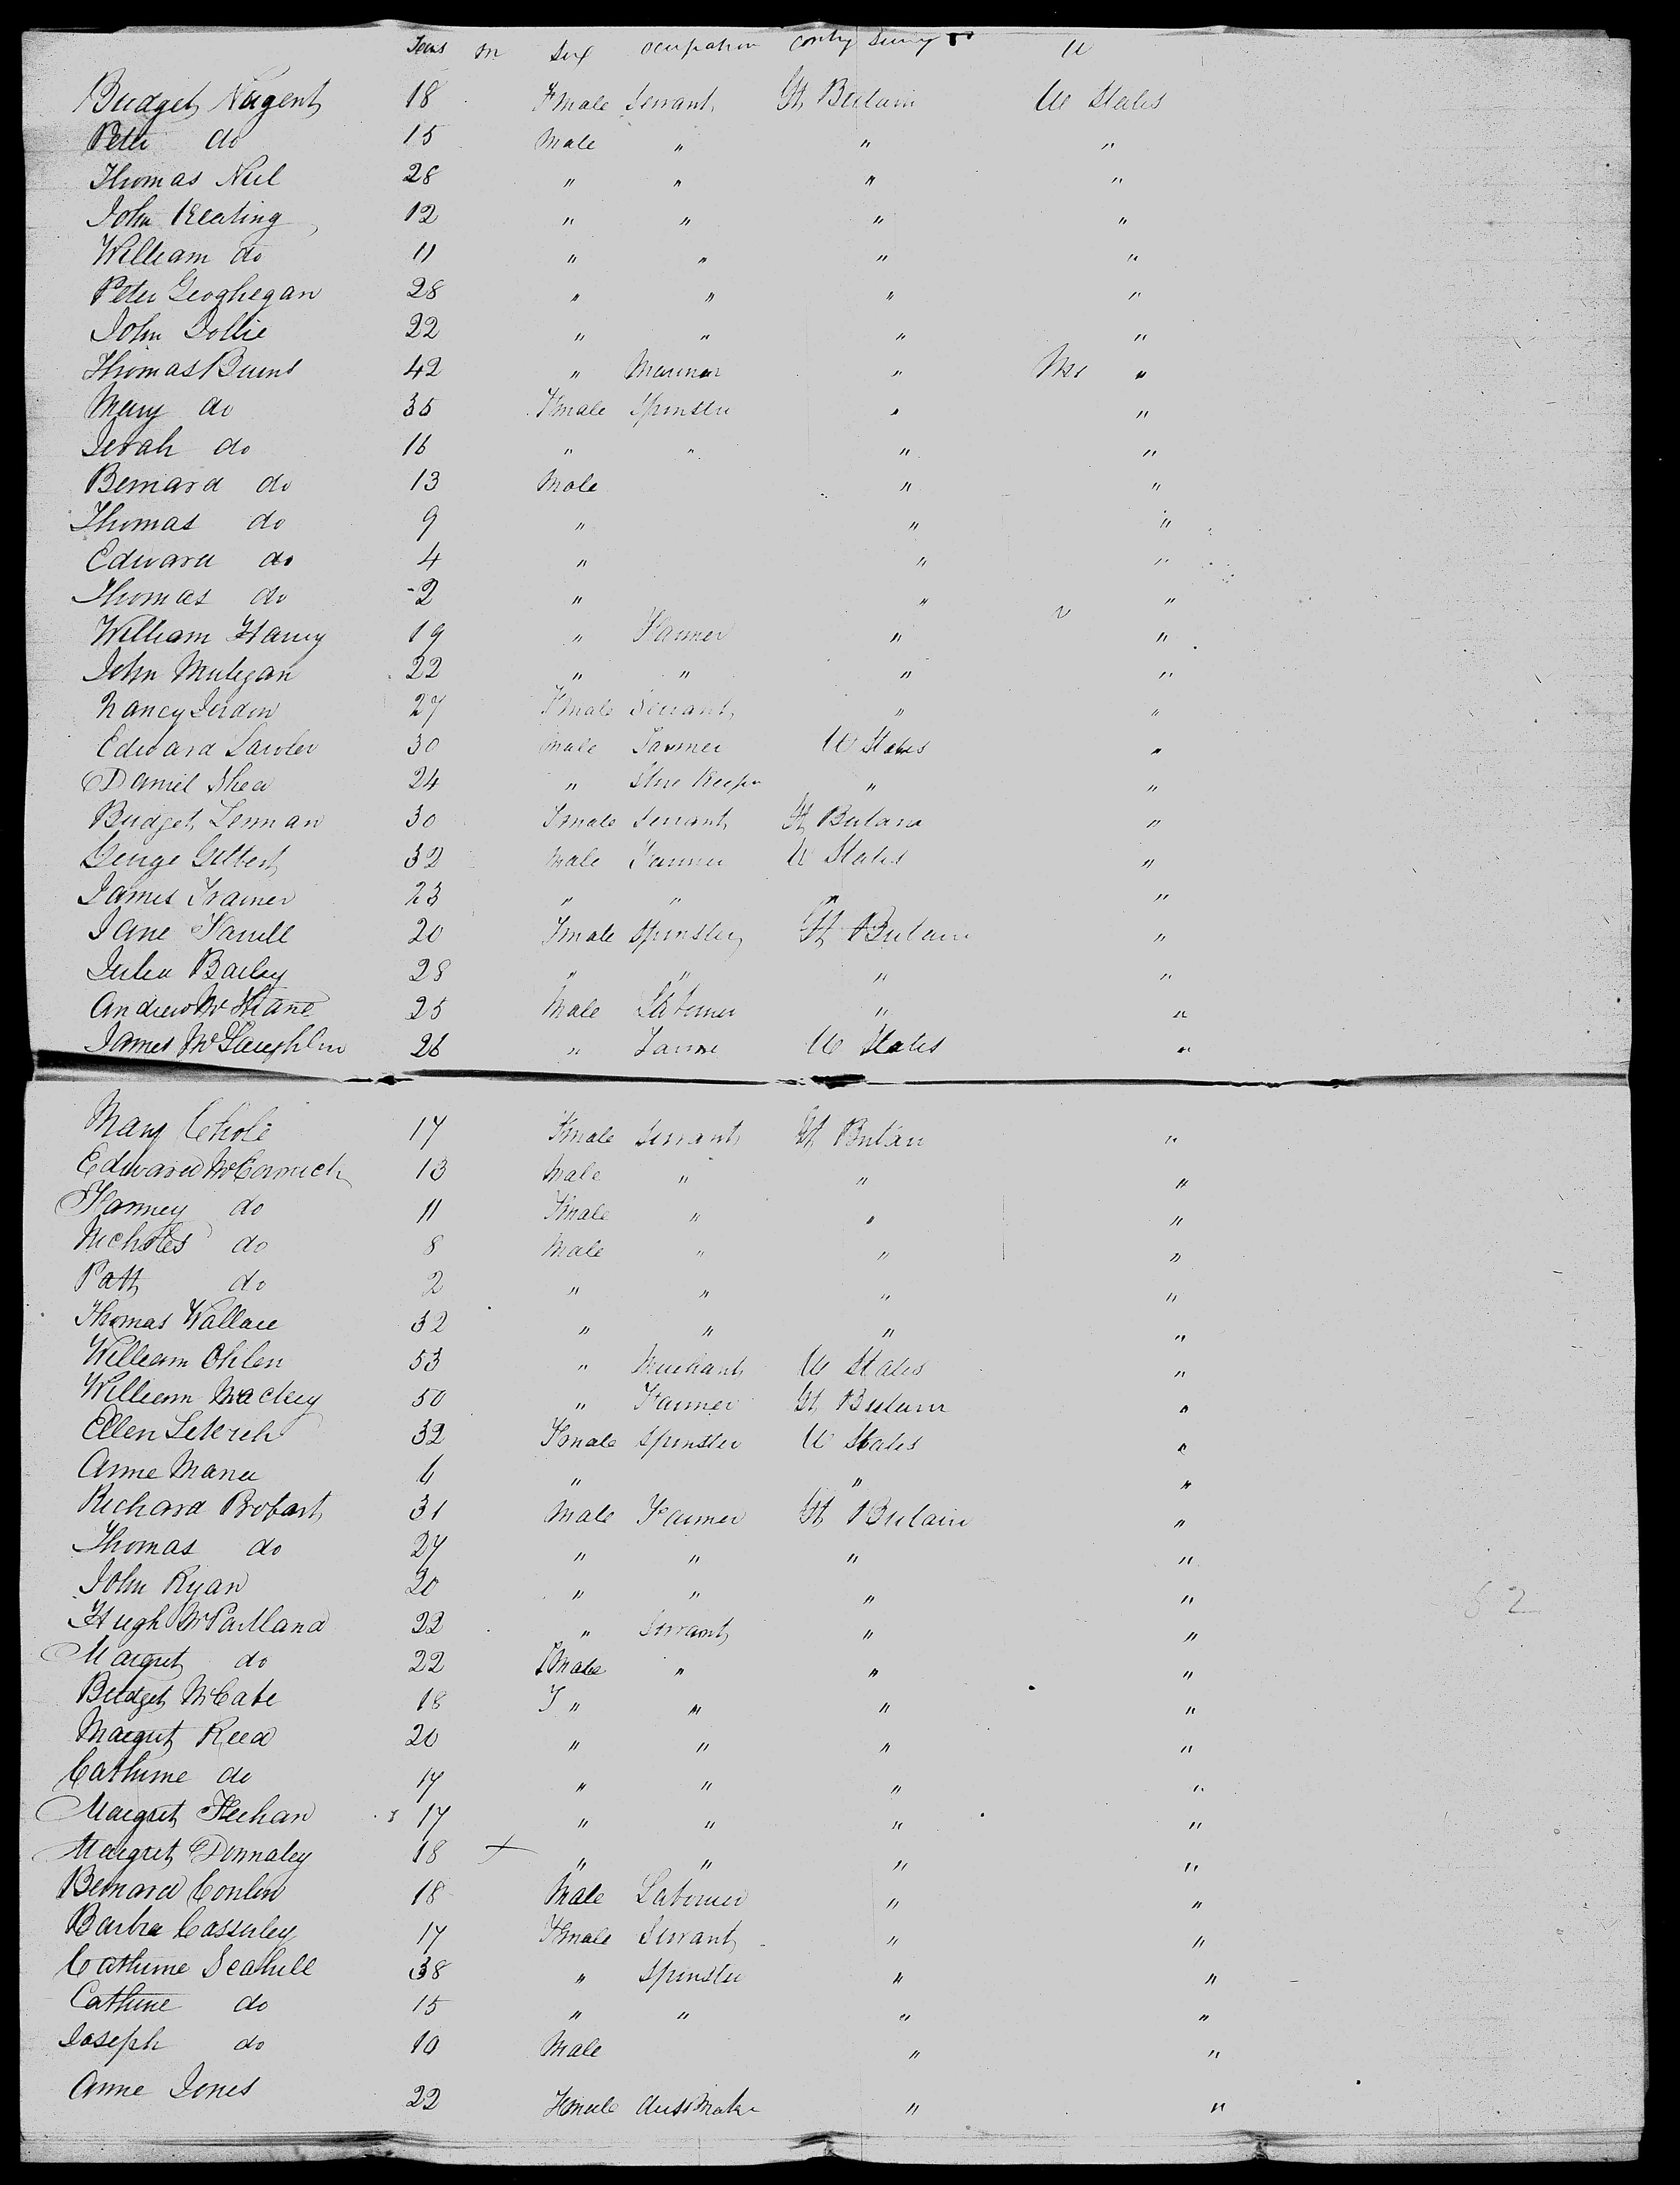 Years M Sex Ocupation Contry
Bridget Nugent 18 Female Servant Gt Britain U States
Peter do 15 Male " " "
Thomas Neil 28 " " " "
John Keating 12 " " " "
William do 11 " " " "
Peter Geoghegan 28 " " " "
John Dollie 22 " " " "
Thomas Burns 42 " Mariner " "
Mary do 35 Female Spinster " "
Serah do 16 " " " "
Bernard do 13 Male " "
Thomas do 9 " " "
Edward do 4 " " "
Thomas do 2 " " "
William Harvy 19 " Farmer " "
John Mulegan 22 " " " "
Nancy Jerdon 27 Female Servant " "
Edward Lawler 30 Male Farmer U States "
Daniel Shea 24 " Store Keeper " "
Bridget Lennan 30 Female Servant Gt Britain "
George Gilbert 32 Male Farmer U States "
James Tramer 23 " " " "
Jane Farrell 20 Female Spinster Gt Britain "
Julia Bailey 28 " " " "
Andrew McShane 25 Male Laborer " "
James McLaughlin 26 " Farmer U States "
Mary 17 Female Servant Gt Britain "
Edward McCormick 13 Male " " "
Fanney do 11 Female " " "
Nicholes do 8 Male " " "
Patt do 2 " " " "
Thomas Wallace 32 " " " "
William Ohlen 53 " Merchant U States "
William Mackey 50 " Farmer Gt Britain "
Ellen 32 Female Spinster U States "
Anne Maria 6 " " "
Richard Brobart 31 Male Farmer Gt Britain "
Thomas do 27 " " " "
John Ryan 20 " " " "
Hugh McPartland 22 " Servant " "
Margret do 22 Female " " "
Bridget McCabe 18 F " " " "
Margret Reed 20 " " " "
Catherine do 17 " " " "
Margret Feehan 17 " " " "
Margret Donnaley 18 + " " " "
Bernard Conlin 18 Male Laborer " "
Barbra Casserley 17 Female Servant " "
Catherine Scahill 38 " Spinster " "
Catherine do 15 " " " "
Joseph do 10 Male " "
Anne Jones 22 Female dress Maker " "
52